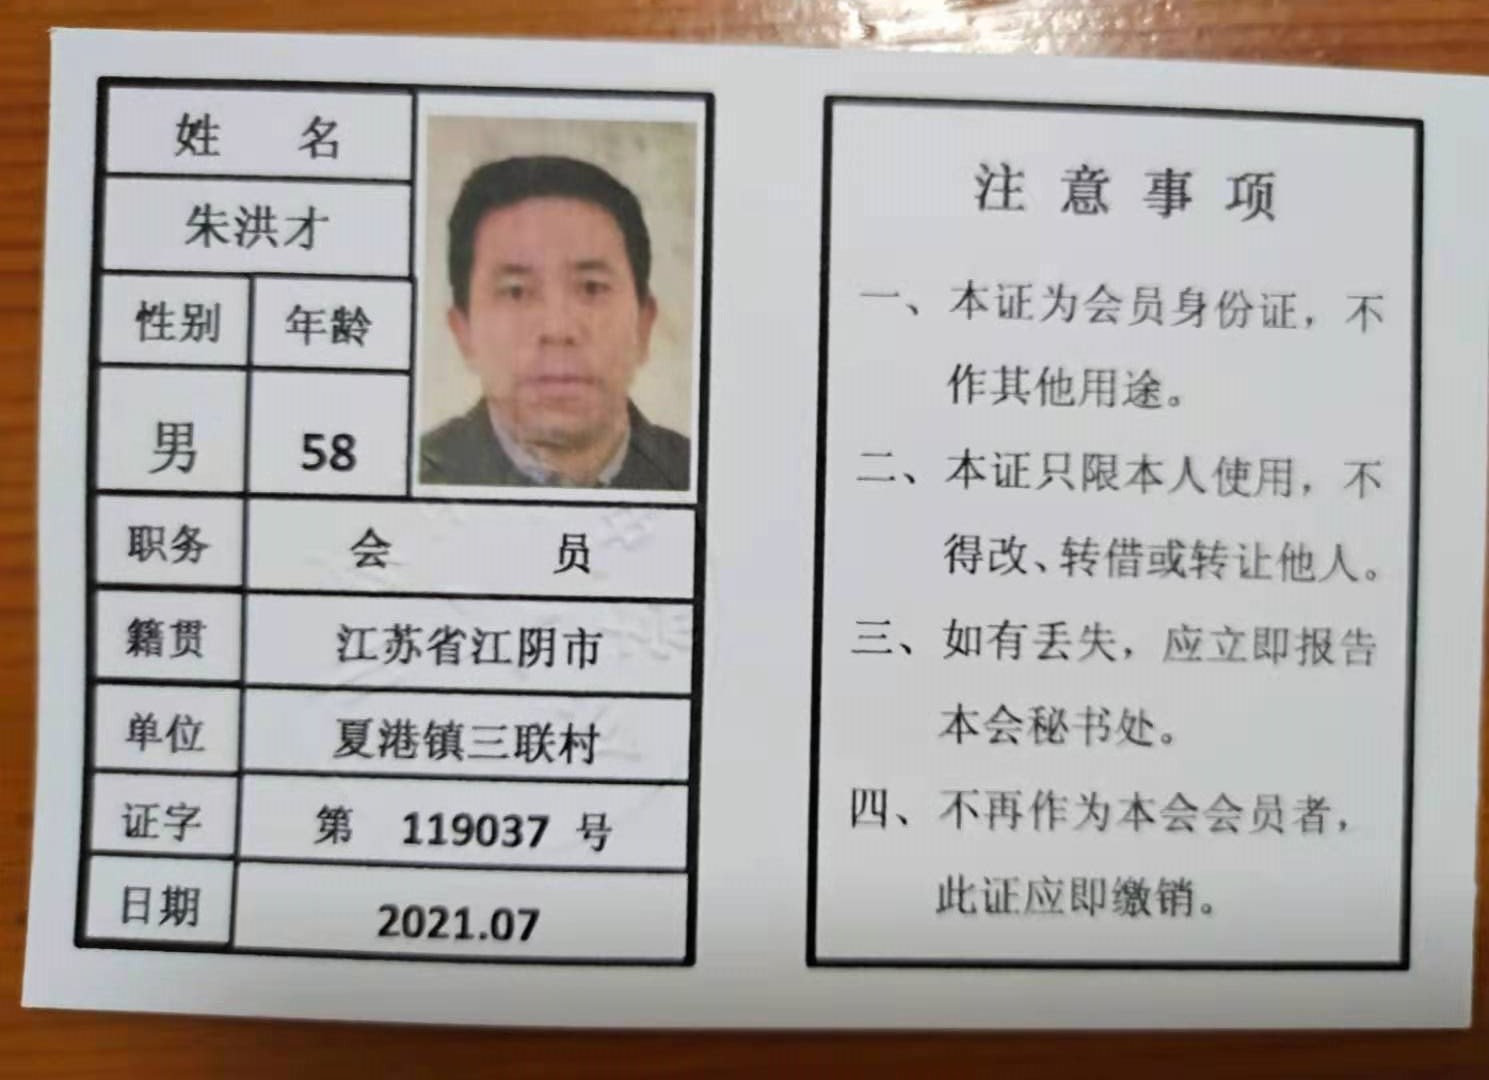 姓 名
朱洪才
性别 年龄
男 58
职务 会 员
籍贯 江苏省江阴市
单位 夏港镇三联村
证字 第 119037 号
日期 2021.07
注 意 事 项
一、本证为会员身份证，不
作其他用途。
二、本证只限本人使用，不
得改、转借或转让他人。
三、如有丢失，应立即报告
本会秘书处。
四、不再作为本会会员者，
此证应即缴销。